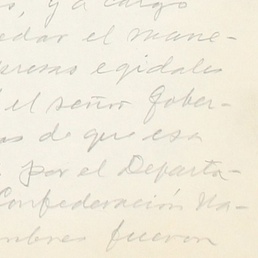 , y a cargo
edar el mane-
presas egidales
el señor Gober-
as de que esa
por el Departa-
Confederación Na-
mbres fueron